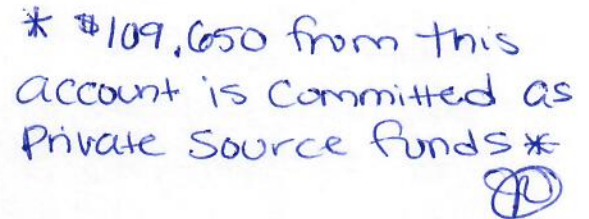 * $109,650 from this
account is committed as
Private Source funds *